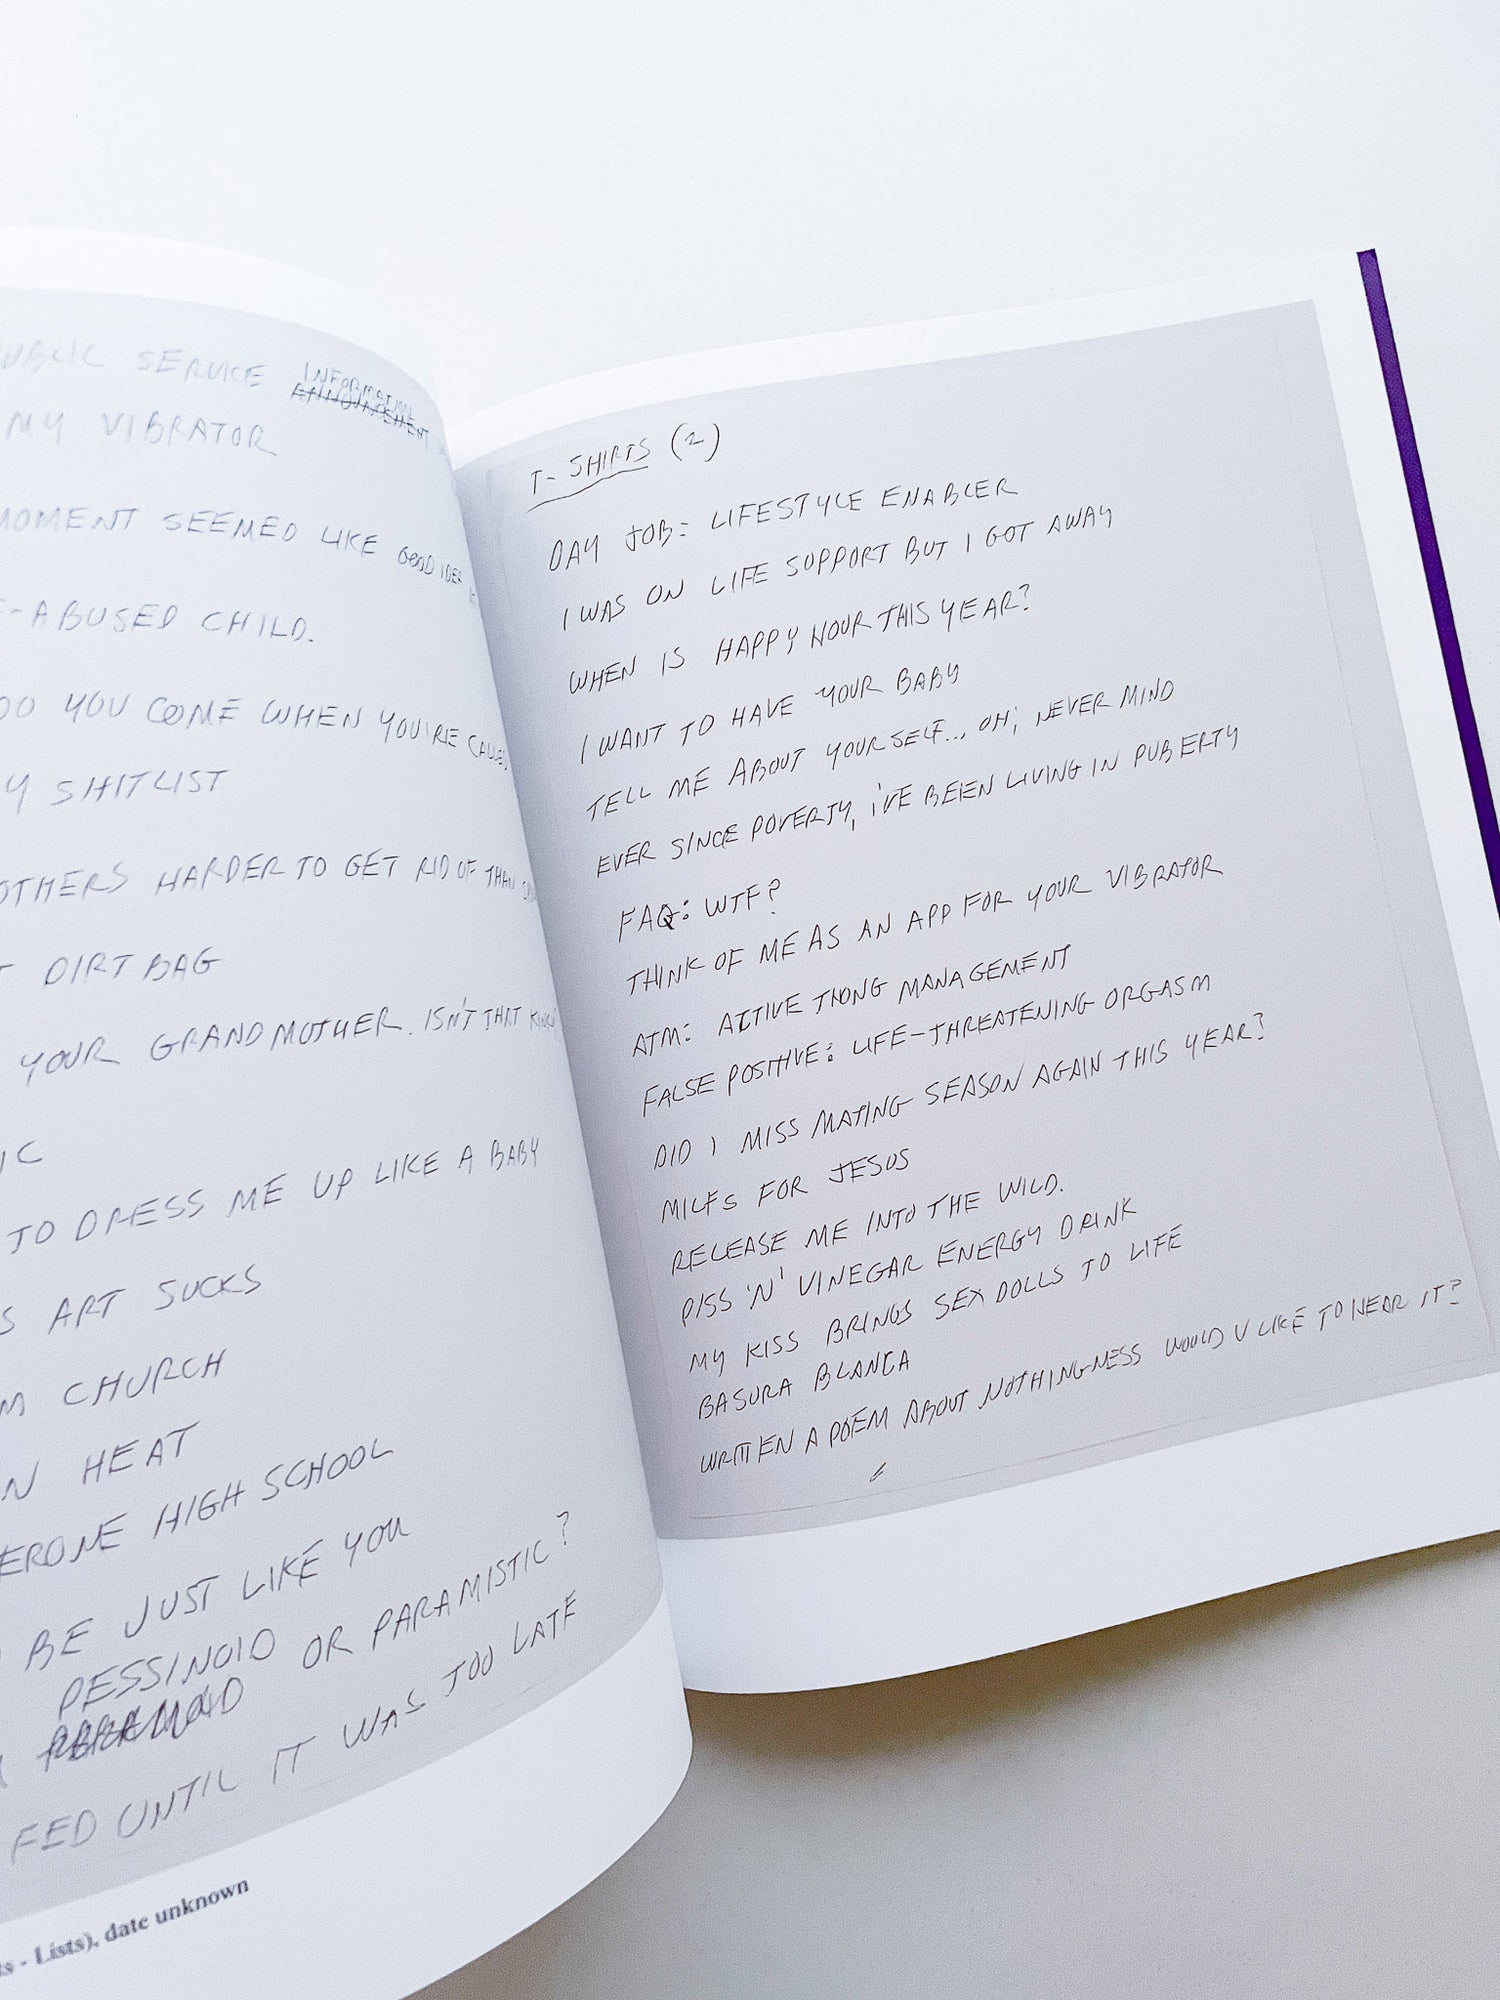 PUBLIC SERVICE INFORMATION ANNOUNCEMENT
MY VIBRATOR
MOMENT SEEMED LIKE GOOD IDEA
-ABUSED CHILD.
DO YOU COME WHEN YOU'RE CALLED
SHITLIST
OTHERS HARDER TO GET RID OF THAN
DIRTBAG
YOUR GRANDMOTHER. ISN'T THAT
IC
TO DRESS ME UP LIKE A BABY
ART SUCKS
CHURCH
HEAT
HIGH SCHOOL
BE JUST LIKE YOU
PESSINOID
OR PARAMISTIC?
FED UNTIL IT WAS TOO LATE
- Lists), date unknown
T-SHIRTS (2)
DAY JOB: LIFESTYLE ENABLER
I WAS ON LIFE SUPPORT BUT I GOT AWAY
WHEN IS HAPPY HOUR THIS YEAR?
I WANT TO HAVE YOUR BABY
TELL ME ABOUT YOURSELF... OH, NEVER MIND
EVER SINCE POVERTY, I'VE BEEN LIVING IN PUBERTY
FAQ: WTF?
THINK OF ME AS AN APP FOR YOUR VIBRATOR
ATM: ACTIVE THONG MANAGEMENT
FALSE POSITIVE: LIFE-THREATENING ORGASM
DID I MISS MATING SEASON AGAIN THIS YEAR?
MILFS FOR JESUS
RELEASE ME INTO THE WILD.
PISS 'N' VINEGAR ENERGY DRINK
MY KISS BRINGS SEX DOLLS TO LIFE
BASURA BLANCA
WRITTEN A POEM ABOUT NOTHINGNESS WOULD U LIKE TO HEAR IT?